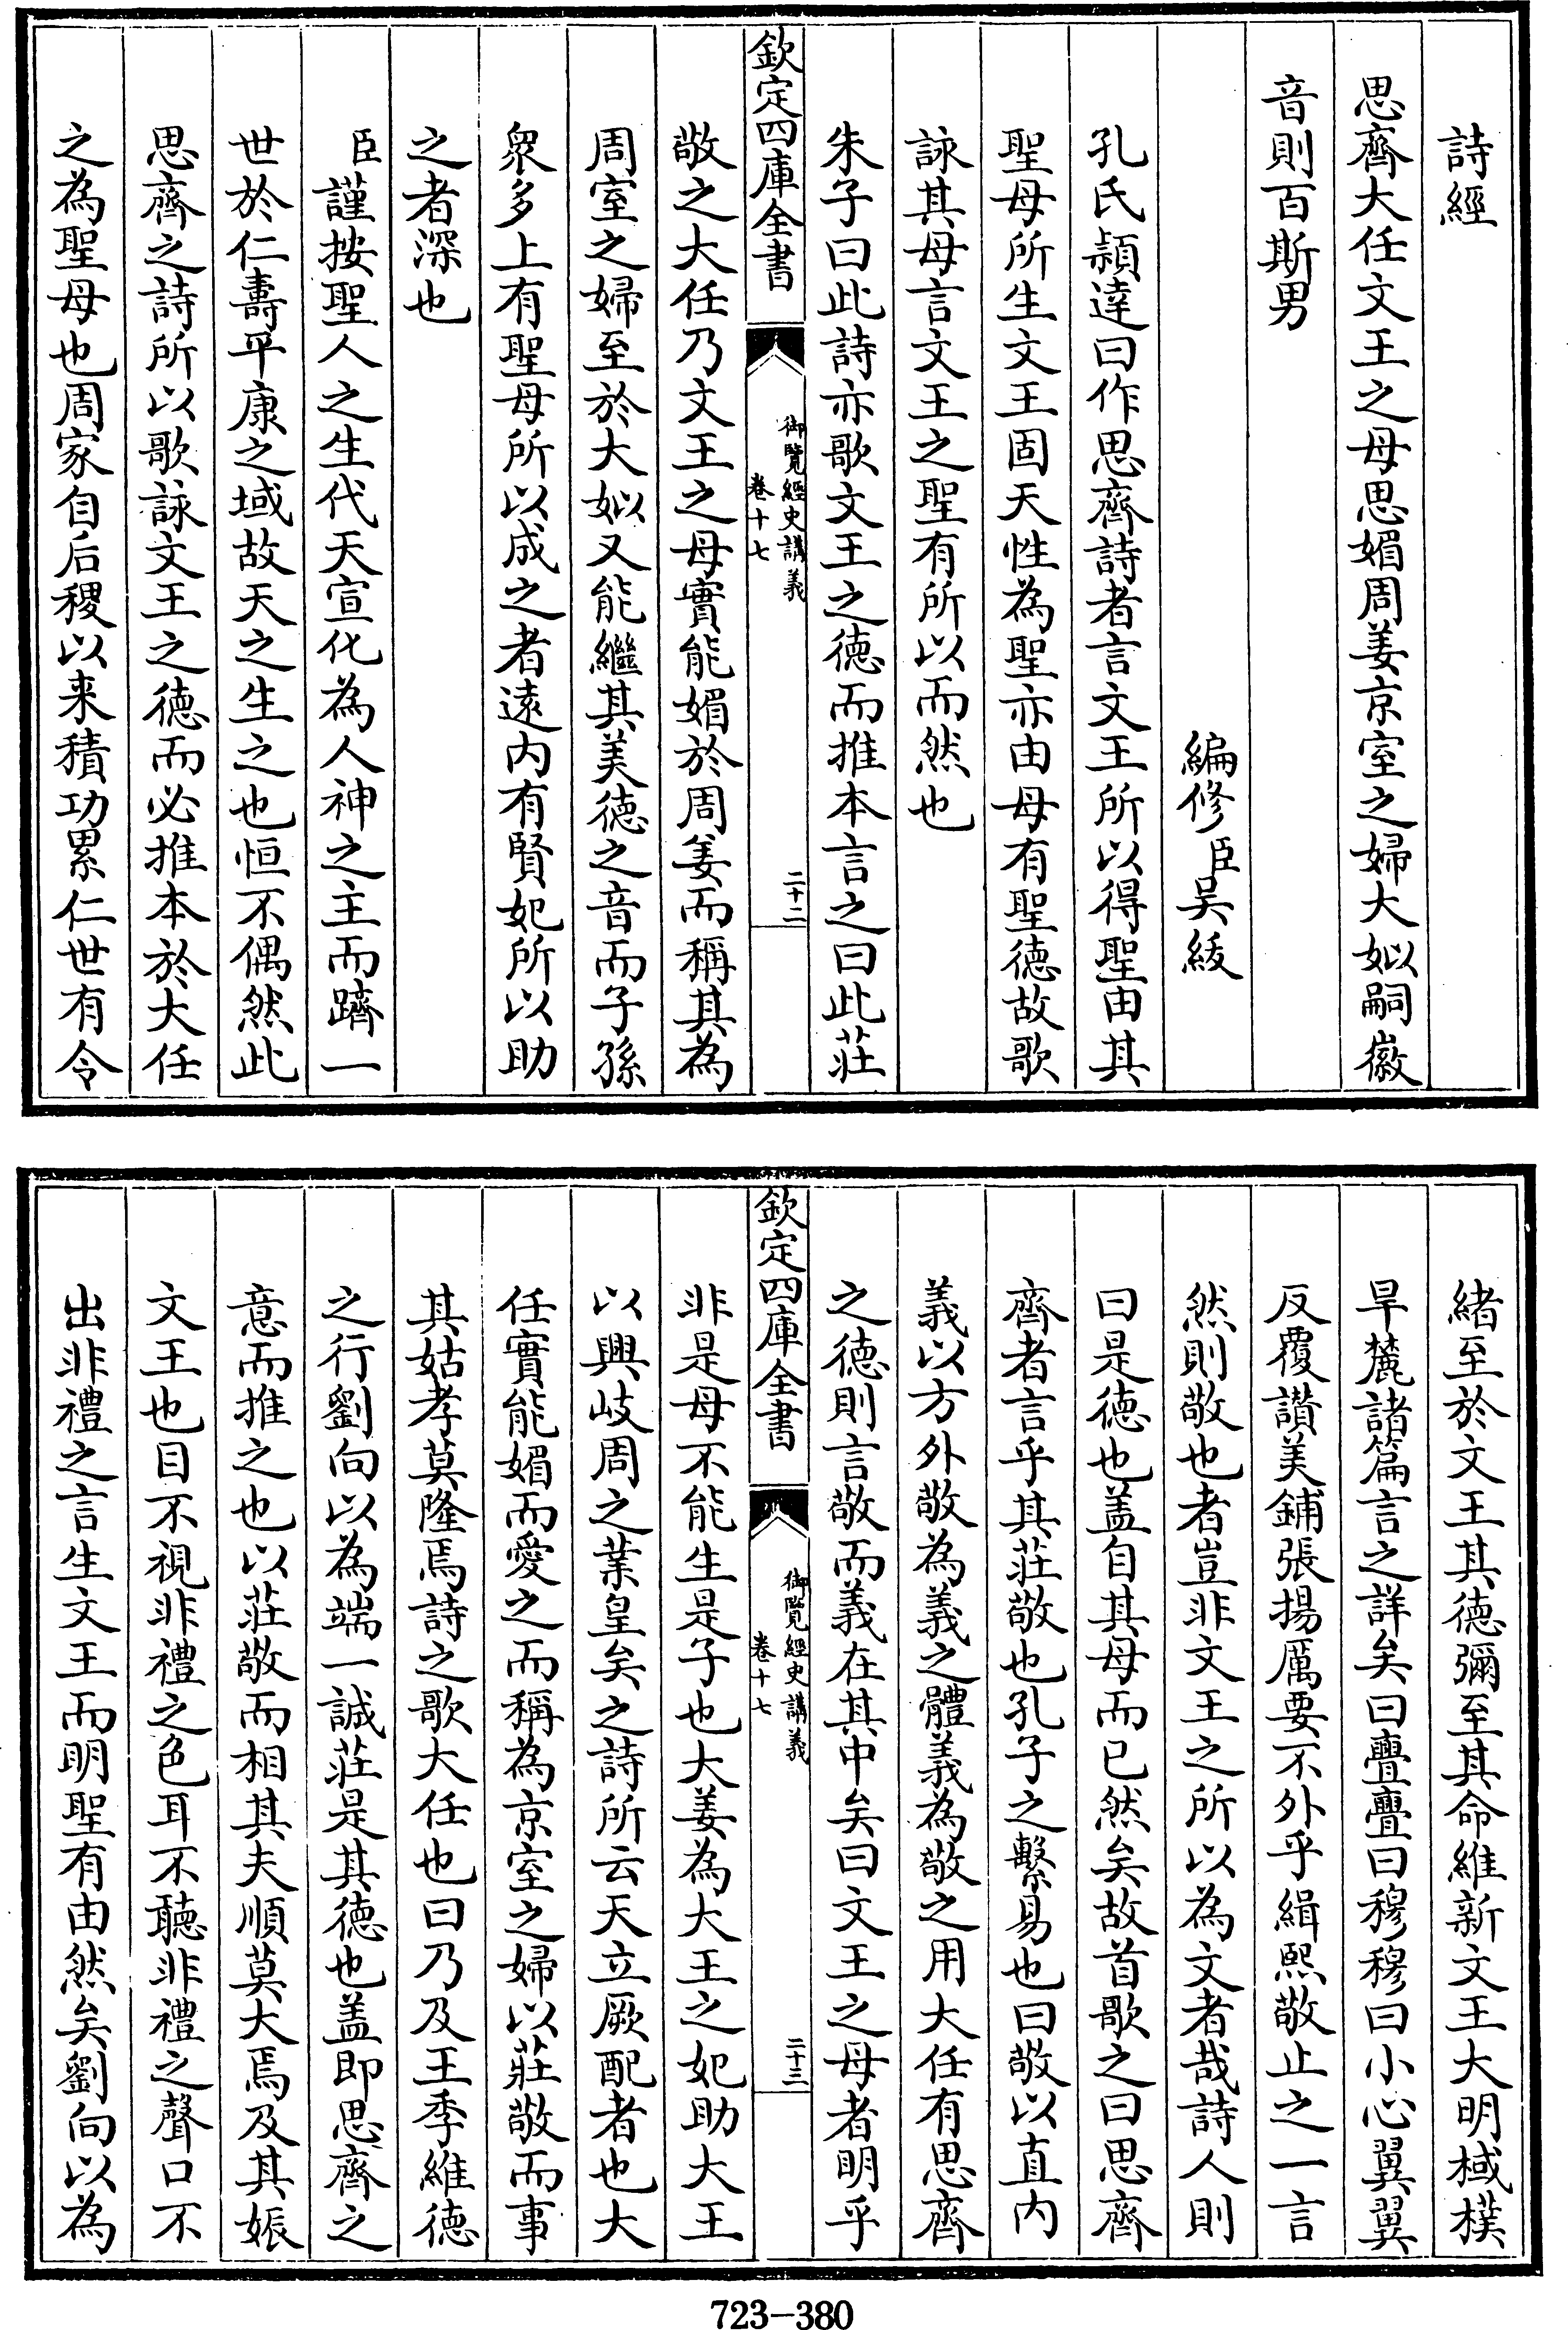 詩經
思齊大任文王之母思媚周姜京室之婦大姒嗣徽
音則百斯男
編修臣吳綬
孔氏頴達曰作思齊詩者言文王所以得聖由其
聖母所生文王固天性為聖亦由母有聖德故歌
詠其母言文王之聖有所以而然也
朱子曰此詩亦歌文王之德而推本言之曰此莊
欽定四庫全書
御覽經史講義
卷十七
二十二
敬之大任乃文王之母實能媚於周姜而稱其為
周室之婦至於大姒又能繼其美德之音而子孫
衆多上有聖母所以成之者遠內有賢妃所以助
之者深也
臣謹按聖人之生代天宣化為人神之主而躋一
世於仁壽平康之域故天之生之也恒不偶然此
思齊之詩所以歌詠文王之德而必推本於大任
之為聖母也周家自后稷以来積功累仁世有令
緒至於文王其德彌至其命維新文王大明棫樸
旱麓諸篇言之詳矣曰亹亹曰穆穆曰小心翼翼
反覆讚美鋪張揚厲要不外乎緝熙敬止之一言
然則敬也者豈非文王之所以為文者哉詩人則
曰是德也盖自其母而已然矣故首歌之曰思齊
齊者言乎其莊敬也孔子之繫易也曰敬以直內
義以方外敬為義之體義為敬之用大任有思齊
之德則言敬而義在其中矣曰文王之母者明乎
欽定四庫全書
御覽經史講義
卷十七
二十三
非是母不能生是子也大姜為大王之妃助大王
以興岐周之業皇矣之詩所云天立厥配者也大
任實能媚而愛之而稱為京室之婦以莊敬而事
其姑孝莫隆焉詩之歌大任也曰乃及王季維德
之行劉向以為端一誠莊是其德也盖即思齊之
意而推之也以莊敬而相其夫順莫大焉及其娠
文王也目不視非禮之色耳不聽非禮之聲口不
出非禮之言生文王而明聖有由然矣劉向以為
723-380